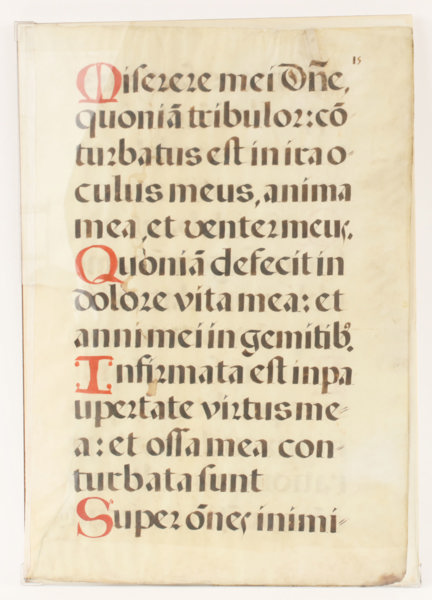 15
Miserere mei Dñe,
quoniã tribulor: cõ
turbatus est in ira o-
culus meus, anima
mea, et venter meus.
Quoniã defecit in
dolore vita mea: et
anni mei in gemitib9.
Infirmata est in pa
upertate virtus me-
a: et ossa mea con-
turbata sunt
Super õnes inimi-